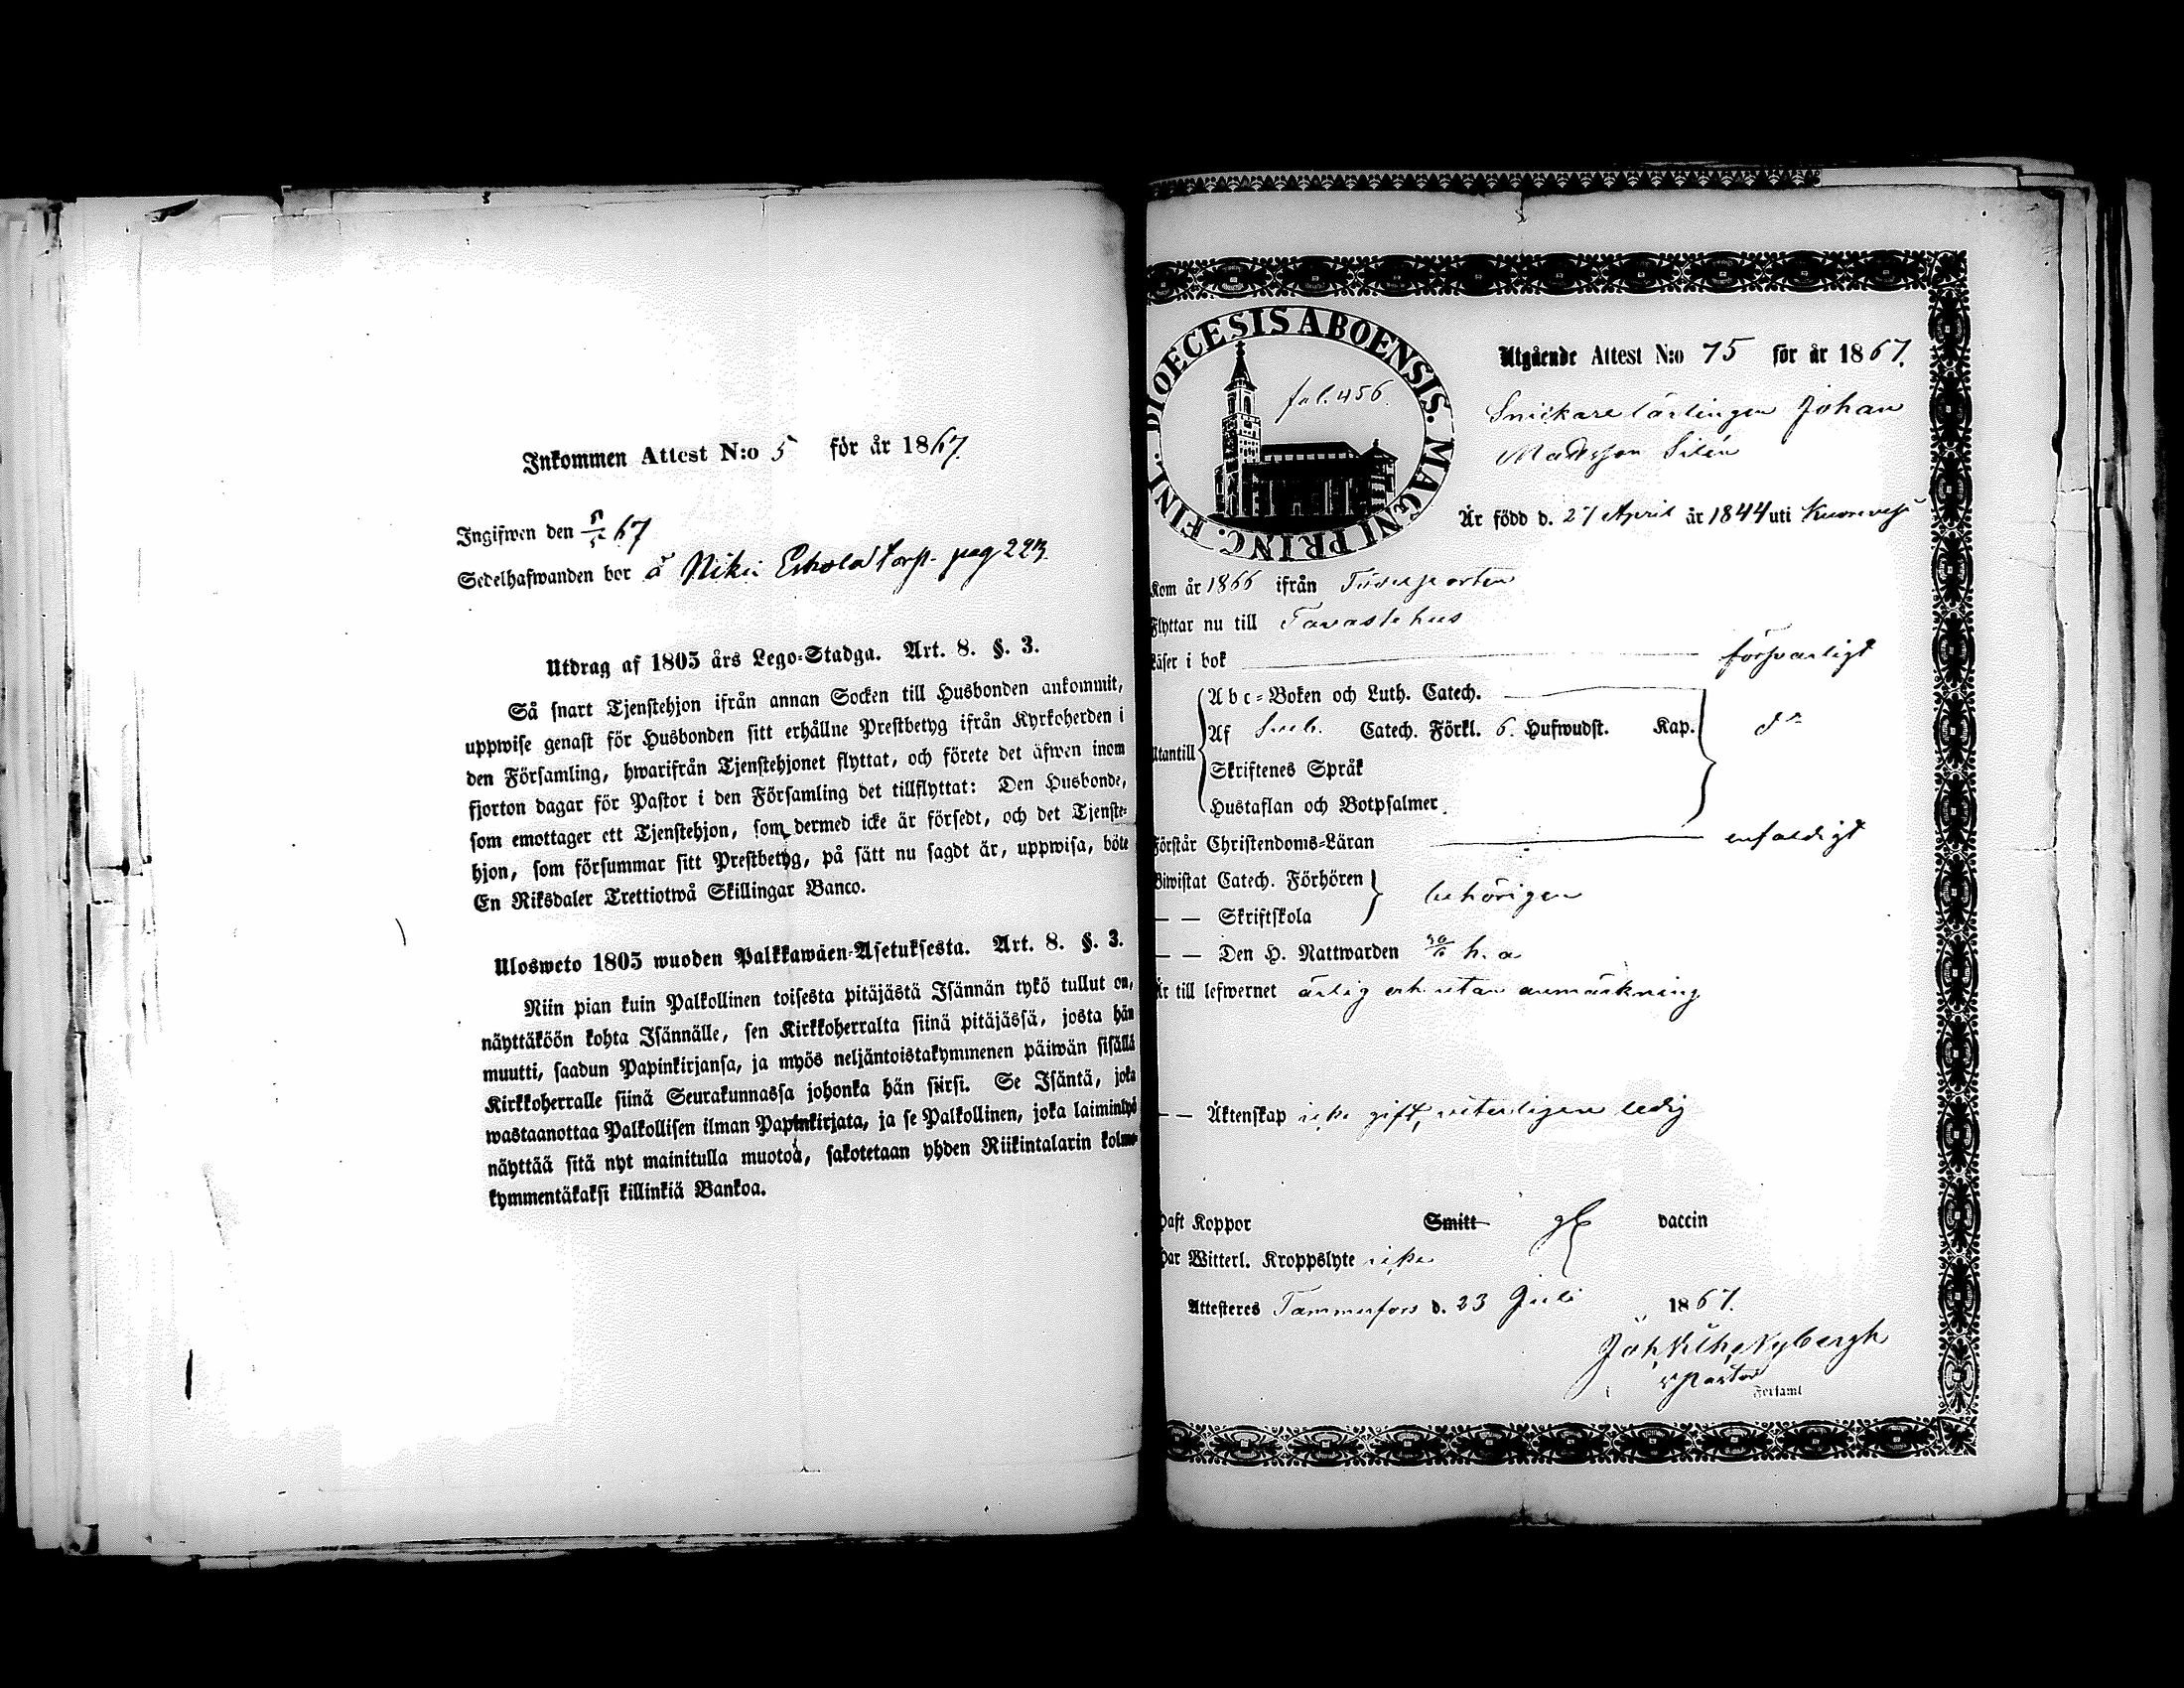 Inkommen Attest N:o 5 för år 1867.
Ingifwen den 67
Sedelhafwanden bor å Torp. pag 223.
Utdrag af 1805 års Lego-Stadga. Art. 8. §. 3.
Så snart Tjenstehjon ifrån annan Socken till Husbonden ankommit,
uppwise genast för Husbonden sitt erhållne Prestbetyg ifrån Kyrkoherden i
den Församling, hwarifrån Tjenstehjonet flyttat, och förete det äfwen inom
fjorton dagar för Pastor i den Församling det tillflyttat: Den Husbonde,
som emottager ett Tjenstehjon, som dermed icke är försedt, och det Tjenste-
hjon, som försummar sitt Prestbetyg, på sätt nu sagdt är, uppwisa, böte
En Riksdaler Trettiotwå Skillingar Banco.
Ulosweto 1805 wuoden Palkkawäen-Asetuksesta. Art. 8. §. 3.
Niin pian kuin Palkollinen toisesta pitäjästä Isännän tykö tullut on,
näyttäköön kohta Isännälle, sen Kirkkoherralta siinä pitäjässä, josta hän
muutti, saadun Papinkirjansa, ja myös neljäntoistakymmenen päiwän sisällä
Kirkkoherralle siinä Seurakunnassa johonka hän siirsi. Se Isäntä, joka
wastaanottaa Palkollisen ilman Papinkirjata, ja se Palkollinen, joka laiminlyö
näyttää sitä nyt mainitulla muotoa, sakotetaan yhden Riikintalarin kolme-
kymmentäkaksi killinkiä Bankoa.
FINL. DIOECESIS ABOENSIS. MAGNI PRINC.
fol. 456.
Utgående Attest N:o 75 för år 1867.
Snickare lärlingen Johan
Madsson Silén
Är född d. 27 April år 1844 uti Kuorevesi
Kom år 1866 ifrån
Flyttar nu till Tavastehus
Läser i bok försvarligt
Abc-Boken och Luth. Catech.
Utantill Af Sveb. Catech. Förkl. 6. Hufwudst. Kap. do
Skriftenes Språk
Hustaflan och Botpsalmer
Förstår Christendoms-Läran enfaldigt
Biwistat Catech. Förhören behörigen
— — Skriftskola
— — Den H. Nattwarden 30/6 h. a
Är till lefwernet ärlig och utan anmärkning
— — Äktenskap icke gift, veterligen ledig
Haft Koppor Smitt vaccin
Har Witterl. Kroppslyte icke
Attesteres Tammerfors d. 23 Juli 1867.
Joh. Vilh. Nybergh
v Pastor
i Församl